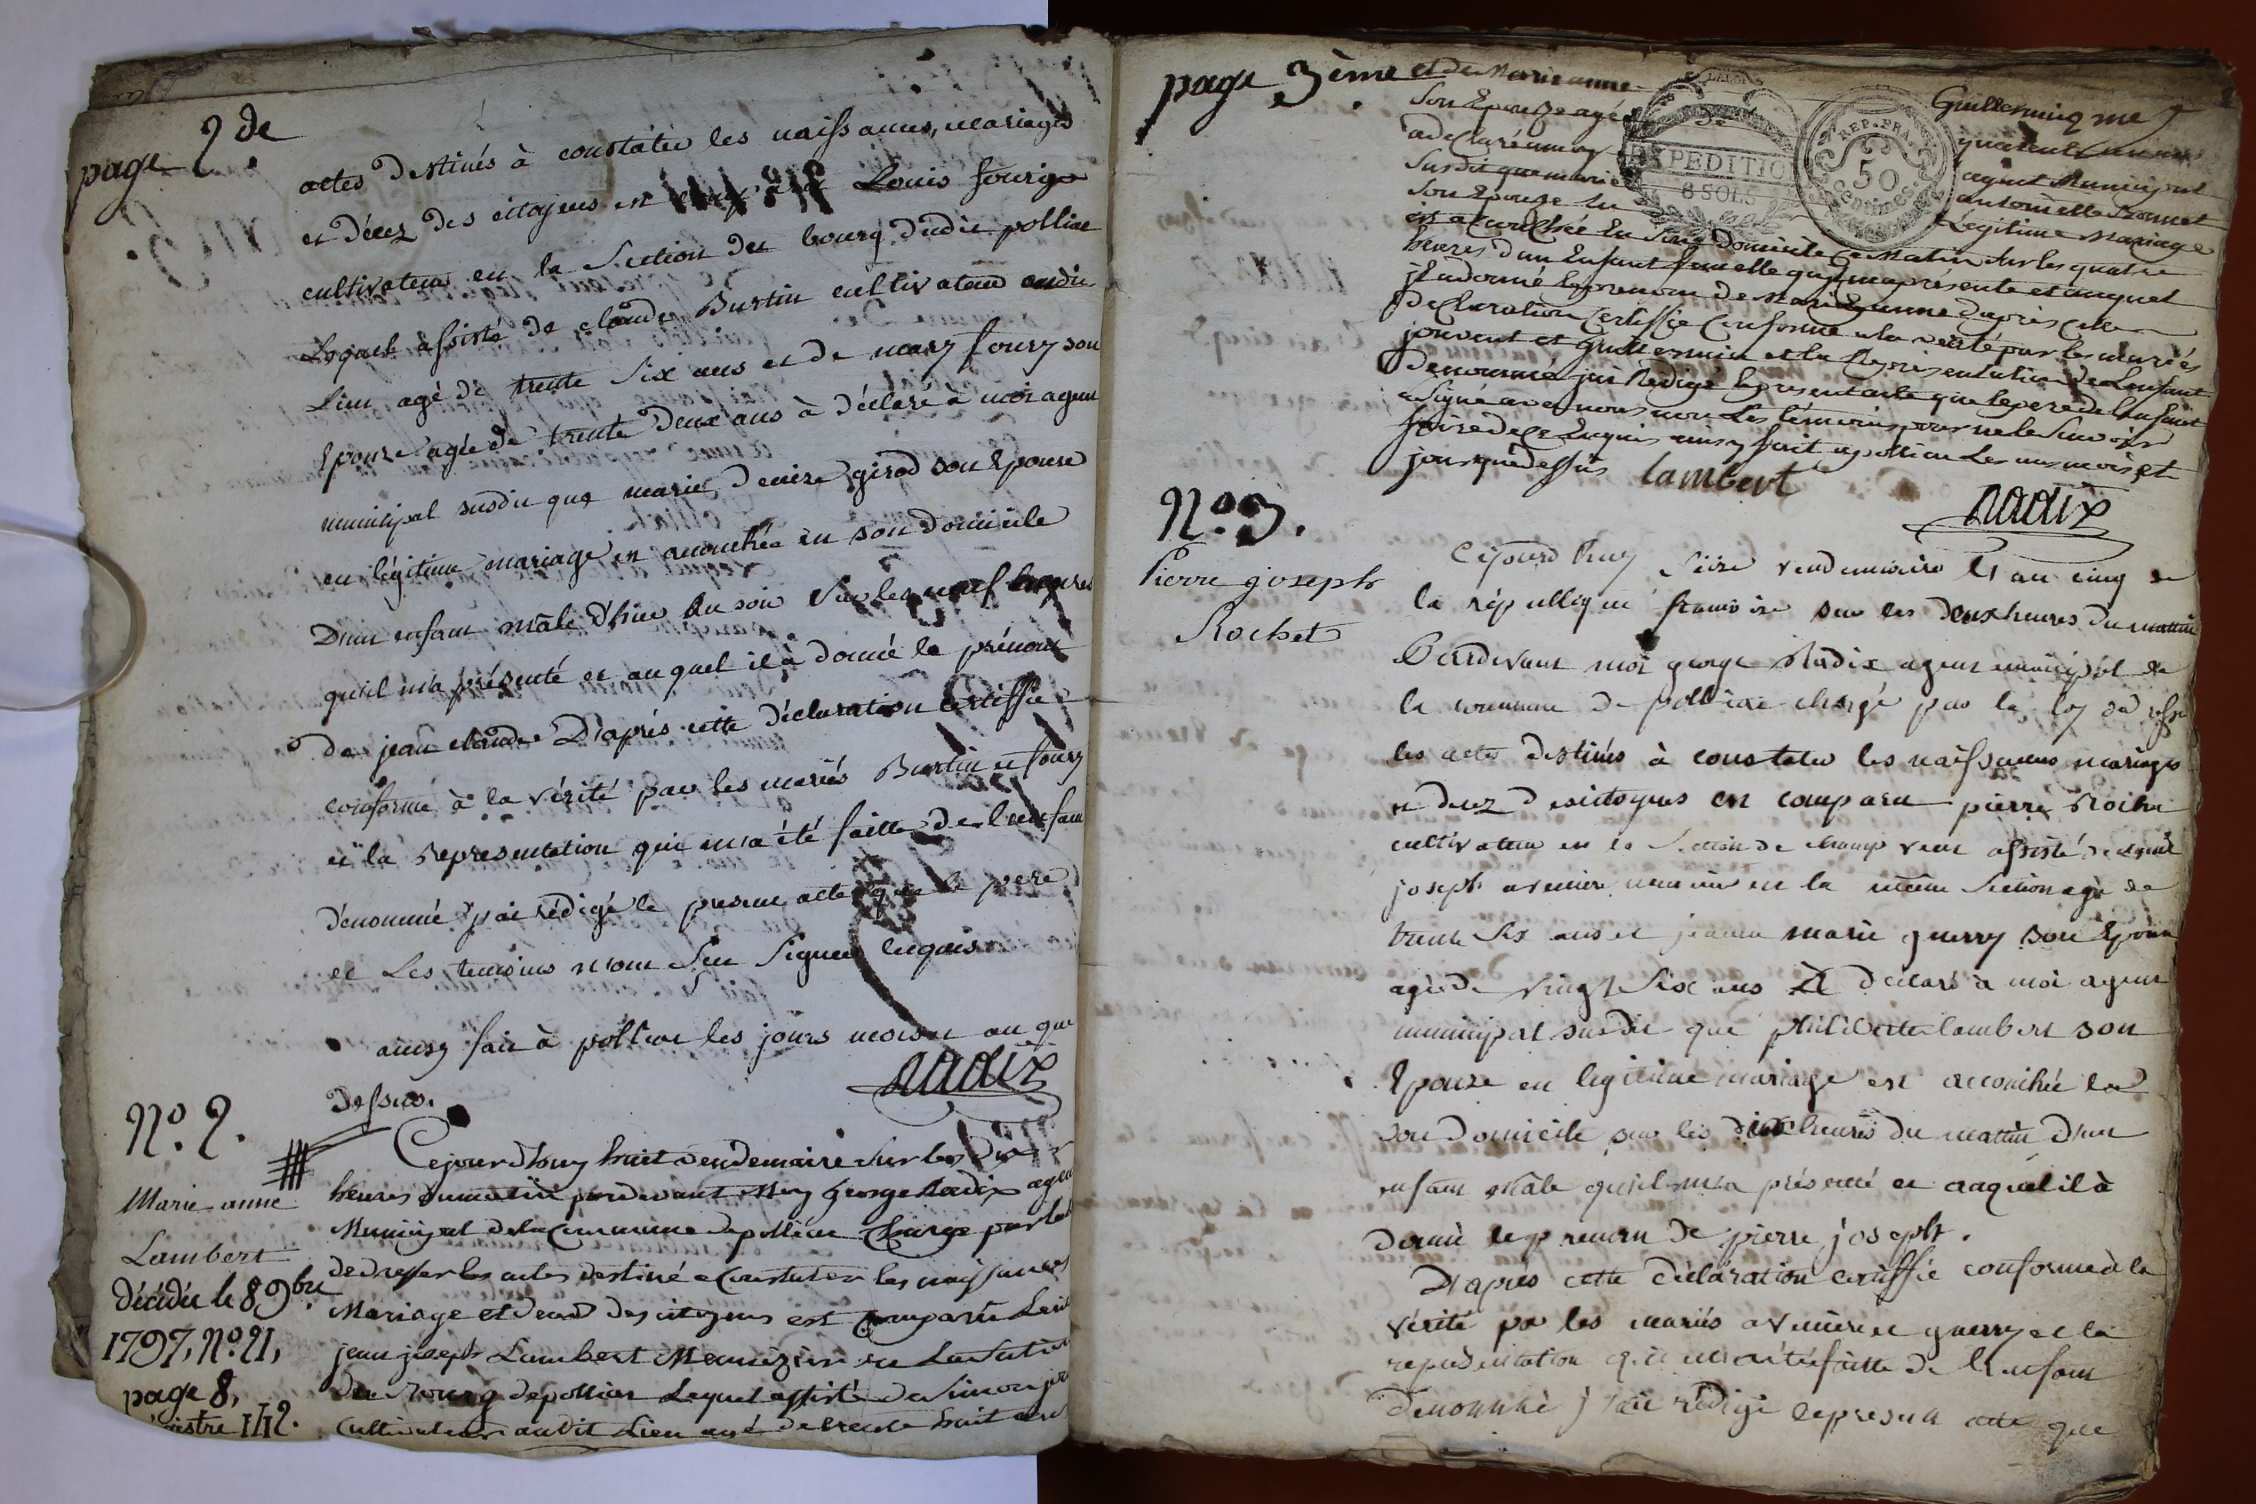 page 2de
actes destinés à constater les naissances, mariages
et décez des citoyens est Louis fourja
cultivateur en la Section du bourg dudit polliat
Lequel assisté de claude Burtin cultivateur audit
Lieu agé de trente Six ans et de mary foury son
Epouse agée de trente deux ans à déclaré à moi agent
municipal susdit que marie denise girod son Epouse
en légitime mariage est accouchée en son domicile
D'un enfant mâle d'hier du soir Sur les neuf heures
qu'il m'a présenté et auquel il à donné le prénom
de jean claude D'aprés cette déclaration certiffie
conforme à la vérité par les mariés Burtin et foury
et la representation qui m'a été faitte de l'enfant
dénommé j'ai rédigé le present acte que le pere
et Les temoins n'ont Seu Signer enquis
ainsy fait à polliat les jours mois et an que
dessus.
Radix
No. 2.
Marie-anne
Lambert
décédée le 8 9bre
1797, No. 21,
page 8,
Cejourd'huy huit vendemaire Sur les dix
heures du matin pardevant Moy george Radix agent
Municipal de la Commune de polliat Chargé par la loi
de dresser les actes destiné a Constater les naissances
Mariage et deces des citoyens est Comparu Le cit
jean joseph Lambert Menuizier en La Section
du Bourg de polliat Lequel assisté de Simon
Cultivateur audit Lieu agé de trente huit ans
page 3ème
et de Marie anne Guillermin qme
Son Epouse agé quarante
a declaré a moy agent Municipal
Susdit que marie antoinette
Son Epouse en Légitime Mariage
est accouchée en Son Domicile Ce Matin Sur les quatre
heures d'un Enfant femelle qu'il ma présente et auquel
jl a donné le prenom de Marie Anne daprès cette
Declaration Certiffie Conforme a la verité par les mariés
jouvent et Guillermin et la Representation de Lenfant
Denommé jai Redigé le present acte que le pere de l'Enfant
a Signé avec nous non Les témoins pour ne le Savoir
faire de ce Enquis ainsy fait a polliat Les ans mois et
jour que dessus
Lambert
Radix
EXPEDITION
8 SOLS
REP. FRA.
50
Centimes
No. 3.
Pierre joseph
Rochet
Cejourd'huy Seize vendemiaire l'an cinq de
la république francoise sur les deux heures du matin
Pardevant moi george Radix agent municipal de
la commune de polliat chargé par la loy de
les actes destinés à constater les naissances mariages
et decez des citoyens est comparu pierre Rochet
cultivateur en la Section de champ vent assisté de
joseph aveniere en la même Section agé de
trente Six ans et jeanne marie guerry son Epouse
agée de vingt Six ans a déclaré à moi agent
municipal susdit que philiberte lambert son
Epouse en legitime mariage est accouchée en
son domicile sur les dix heures du matin d'un
enfant mâle qu'il m'a présenté et auquel il à
donné le prenom de pierre joseph.
D'aprés cette déclaration certiffie conforme à la
vérité par les mariés aveniere et guerry et la
representation qui m'a été faitte de l'enfant
denommé j'ai rédigé le present acte que